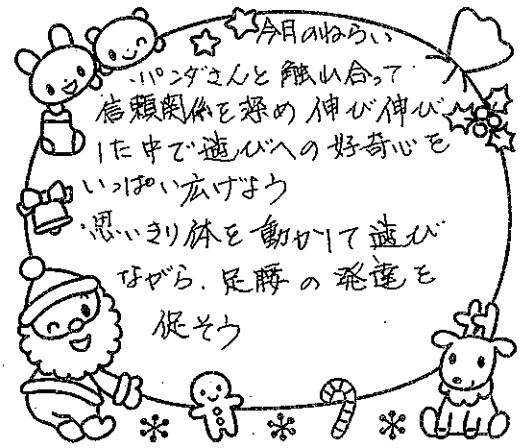 今月のねらい
・パンダさんと触れ合って
信頼関係を深め伸び伸び
した中で遊びへの好奇心を
いっぱい広げよう
・思いきり体を動かして遊び
ながら、足腰の発達を
促そう